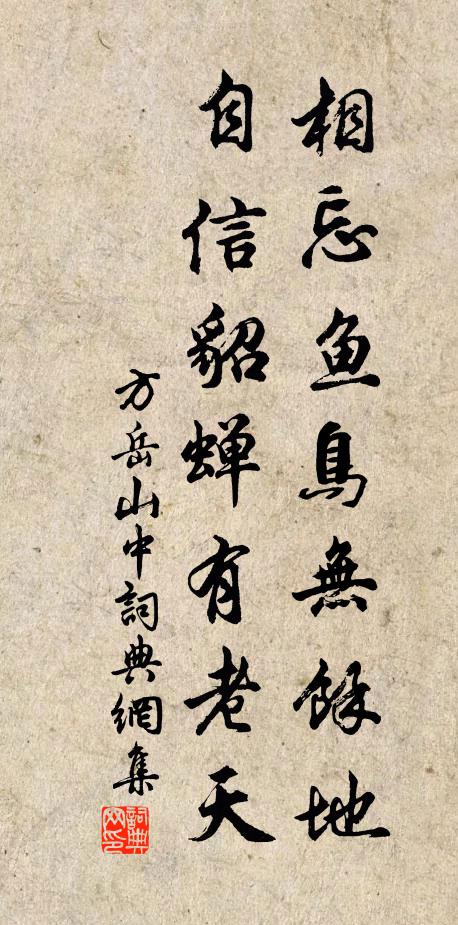 相忘鱼鳥無餘地
自信貂蝉有老天
方岳山中詞典網集
詞典网印